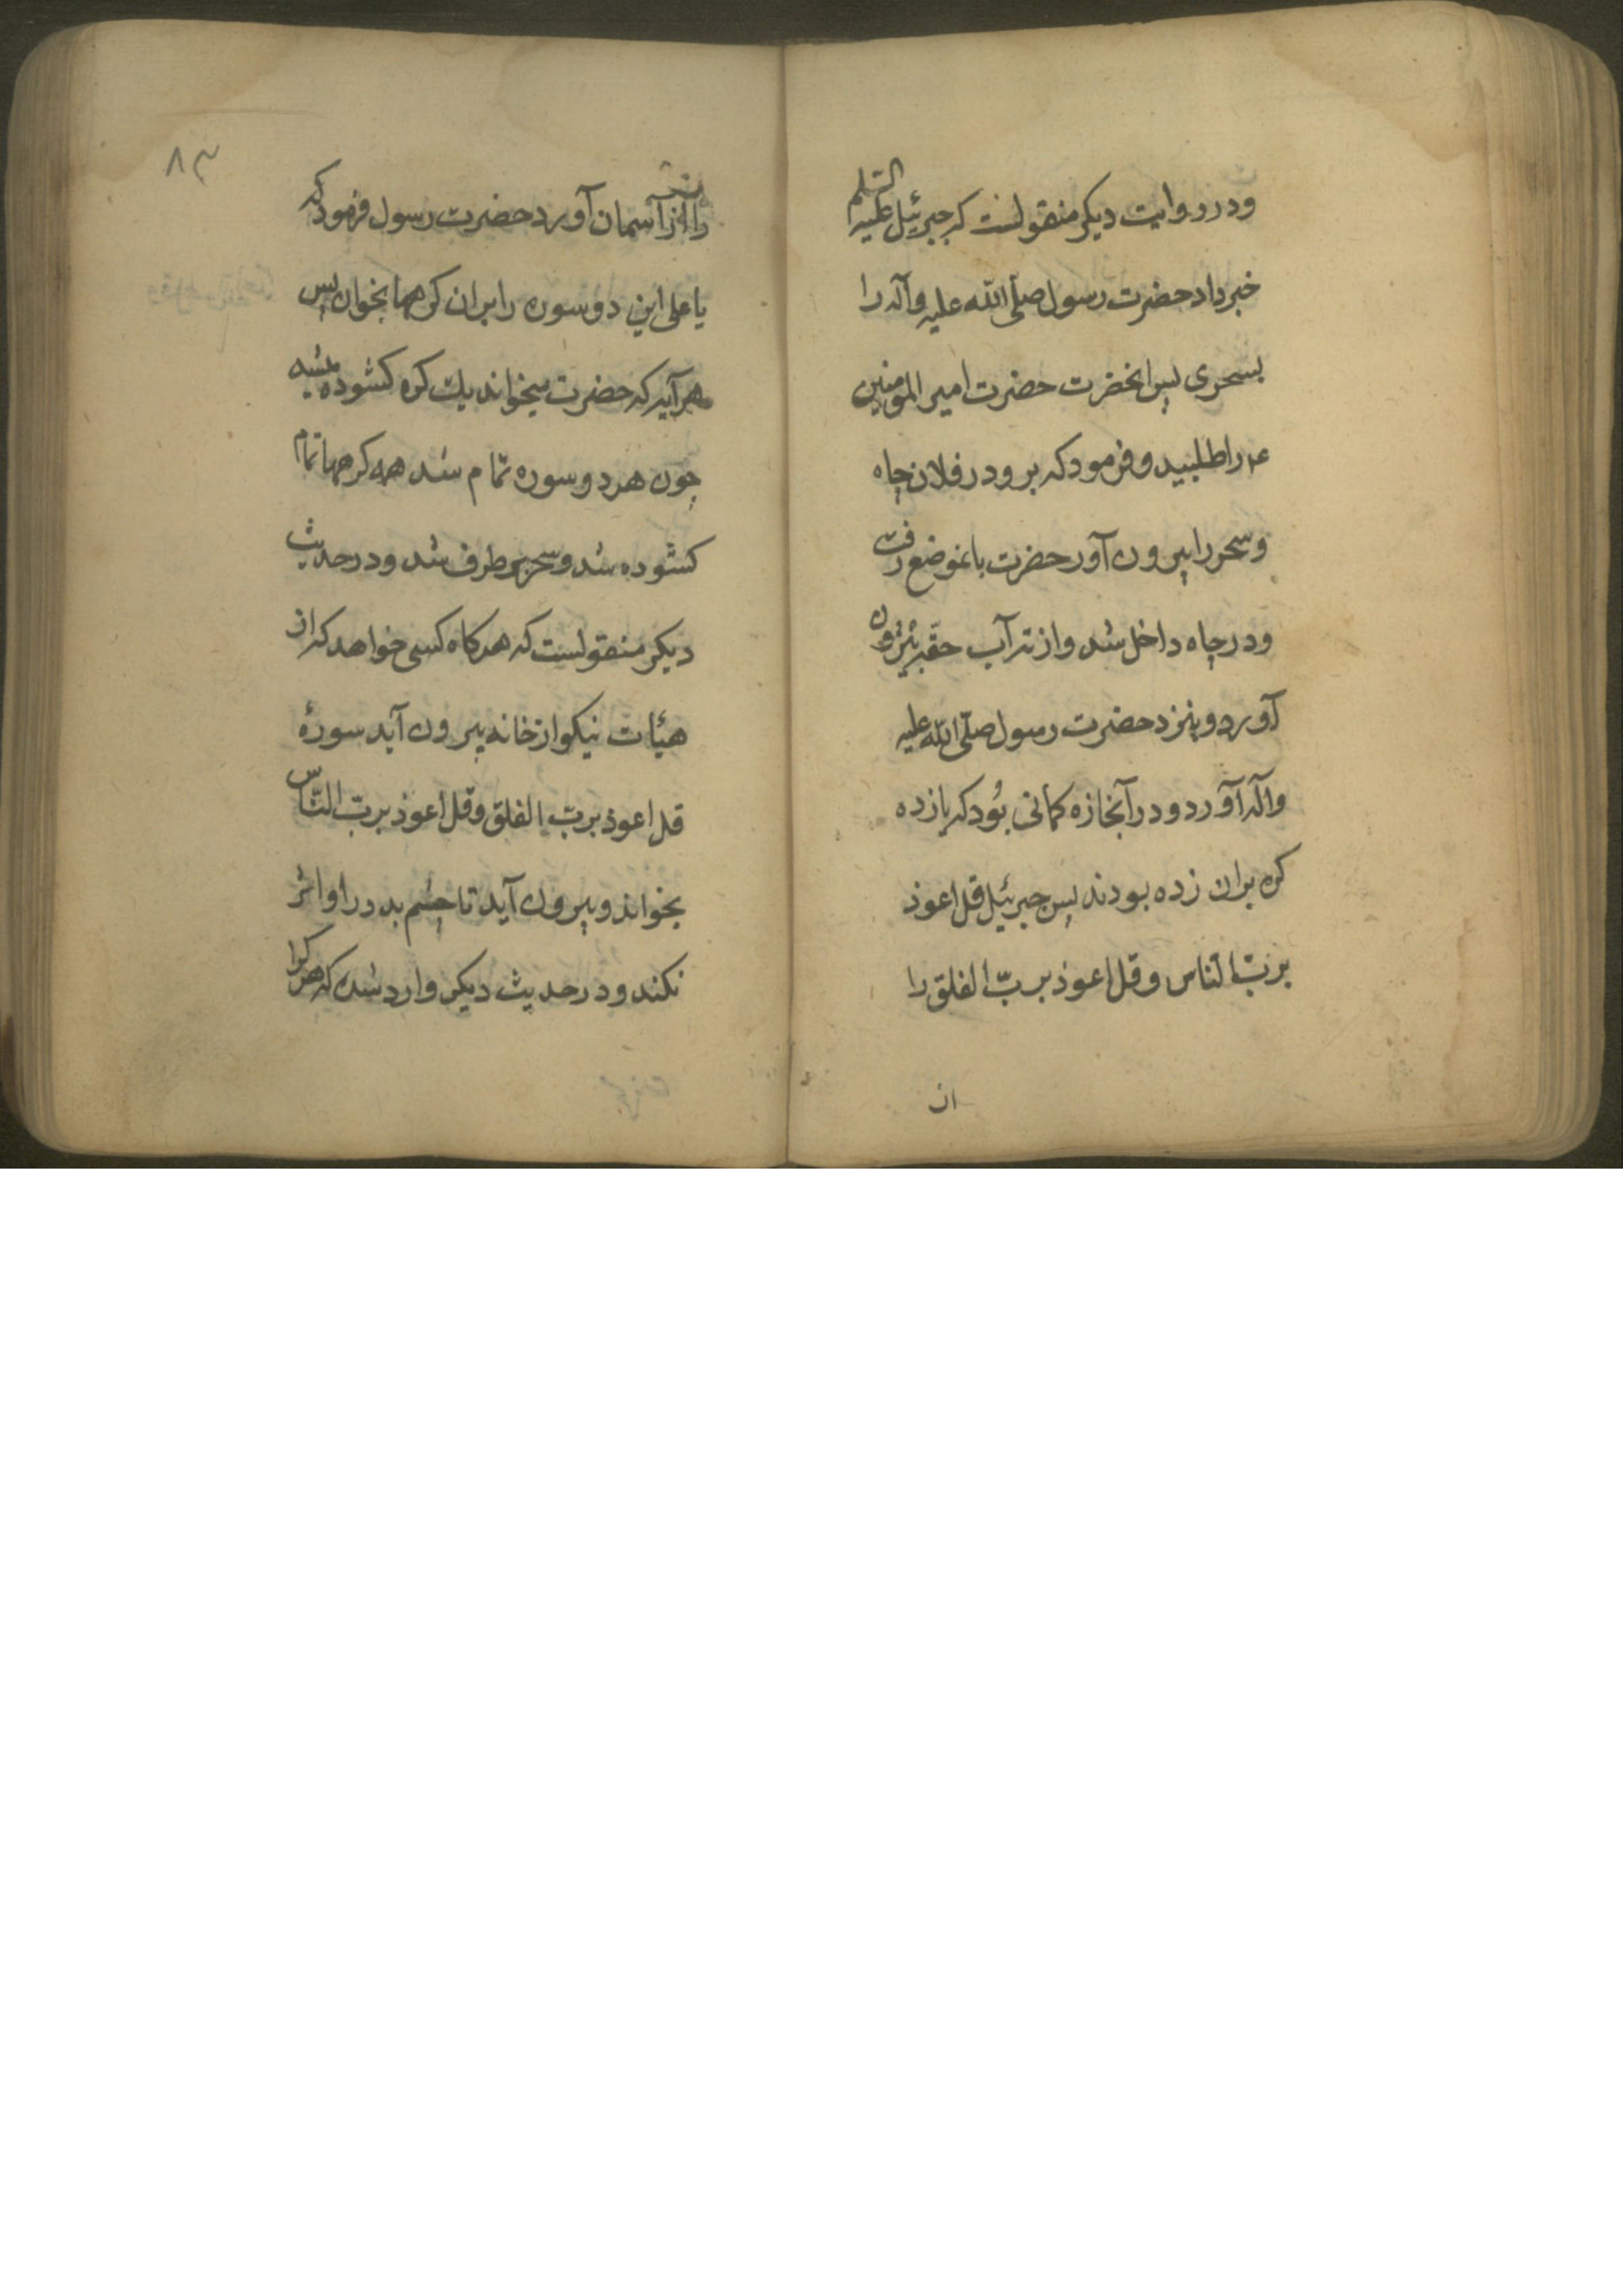 ودر روایت دیکر منقولست که جبرئیل علیه السلم
خبر داد حضرت رسول صلّی الله علیه وآله را
بسحری پس انحضرت حضرت امیر المومنین
ع را طلبید و فرمود که برو در فلان چاه
و سحر را بیرون آور حضرت بانموضع رفت
ودر چاه داخل شد واز ته آب حقه بیرون
آورد وبنزد حضرت رسول صلّی الله علیه
وآله آورد ودر آنجا زه کمانی بود که یازده
کره بران زده بودند پس جبرئیل قل اعوذ
بربّ النّاس وقل اعوذ بربّ الفلق را
از
۳۸
را از آسمان آورد حضرت رسول فرمود که
یا علی این دو سوره را بران کرهها بخوان پس
هر آیه که حضرت میخواند یك کره کشوده میشد
چون هر دو سوره تمام شد همه کرهها تمام
کشوده شد وسحر برطرف شد ودر حدیث
دیکر منقولست که هر کاه کسی خواهد که از
هیئات نیکو از خانه بیرون آید سورۀ
قل اعوذ بربّ الفلق وقل اعوذ بربّ النّاس
بخواند وبیرون آید تا چشم بد در او اثر
نکند ودر حدیث دیکر وارد شده که هر کرا